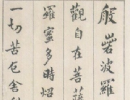 般若波羅
觀自在菩薩
羅蜜多時照
一切苦厄舍